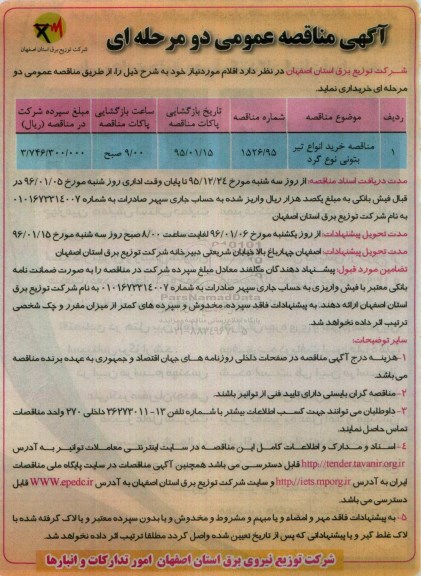 آگهی مناقصه عمومی دو مرحله ای
شرکت توزیع برق استان اصفهان
شرکت توزیع برق استان اصفهان در نظر دارد اقلام موردنیاز خود به شرح ذیل را، از طریق مناقصه عمومی دو
مرحله ای خریداری نماید.
ردیف موضوع مناقصه شماره مناقصه تاریخ بازگشایی پاکات مناقصه ساعت بازگشایی پاکات مناقصه مبلغ سپرده شرکت در مناقصه (ریال)
۱ مناقصه خرید انواع تیر بتونی نوع گرد ۱۵۲۶/۹۵ ۹۵/۰۱/۱۵ ۹/۰۰ صبح ۳/۷۴۶/۳۰۰/۰۰۰
مدت دریافت اسناد مناقصه: از روز سه شنبه مورخ ۹۵/۱۲/۲۴ تا پایان وقت اداری روز شنبه مورخ ۹۶/۰۱/۰۵ در
قبال فیش بانکی به مبلغ یکصد هزار ریال واریز شده به حساب جاری سپهر صادرات به شماره ۰۱۰۱۶۷۳۳۱۴۰۰۷
به نام شرکت توزیع برق استان اصفهان
مدت تحویل پیشنهادات: از روز یکشنبه مورخ ۹۶/۰۱/۰۶ لغایت ساعت ۸/۰۰ صبح روز سه شنبه مورخ ۹۶/۰۱/۱۵
مدت تحویل پیشنهادات: اصفهان چهارباغ بالا خیابان شریعتی دبیرخانه شرکت توزیع برق استان اصفهان
تضامین مورد قبول: پیشنهاد دهندگان مکلفند معادل مبلغ سپرده شرکت در مناقصه را به صورت ضمانت نامه
بانکی معتبر یا فیش واریزی به حساب جاری سپهر صادرات به شماره ۰۱۰۱۶۷۳۳۱۴۰۰۷ به نام شرکت توزیع برق
استان اصفهان ارائه دهند. به پیشنهادات فاقد سپرده مخدوش و سپرده های کمتر از میزان مقرر و چک شخصی
ترتیب اثر داده نخواهد شد.
سایر توضیحات:
۱-هزینه درج آگهی مناقصه در صفحات داخلی روزنامه های جهان اقتصاد و جمهوری به عهده برنده مناقصه
می باشد.
۲- مناقصه گران بایستی دارای تایید فنی از توانیر باشند.
۳- داوطلبان می توانند جهت کسب اطلاعات بیشتر با شماره تلفن ۱۳-۳۶۲۷۳۰۱۱ داخلی ۲۷۰ واحد مناقصات
تماس حاصل نمایند.
۴- اسناد و مدارک و اطلاعات کامل این مناقصه در سایت اینترنتی معاملات توانیر به آدرس
http//tender.tavanir.org.ir قابل دسترسی می باشد همچنین آگهی مناقصات در سایت پایگاه ملی مناقصات
ایران به آدرس http//iets.mporg.ir و سایت شرکت توزیع برق استان اصفهان به آدرس WWW.epedc.ir قابل
دسترسی می باشد.
۵- به پیشنهادات فاقد مهر و امضاء و یا مبهم و مشروط و مخدوش و یا بدون سپرده معتبر و یا لاک گرفته شده با
لاک غلط گیر و یا پیشنهاداتی که پس از تاریخ تعیین شده واصل گردد مطلقا ترتیب اثر داده نخواهد شد.
شرکت توزیع نیروی برق استان اصفهان امور تدارکات و انبارها
ParsNamadData